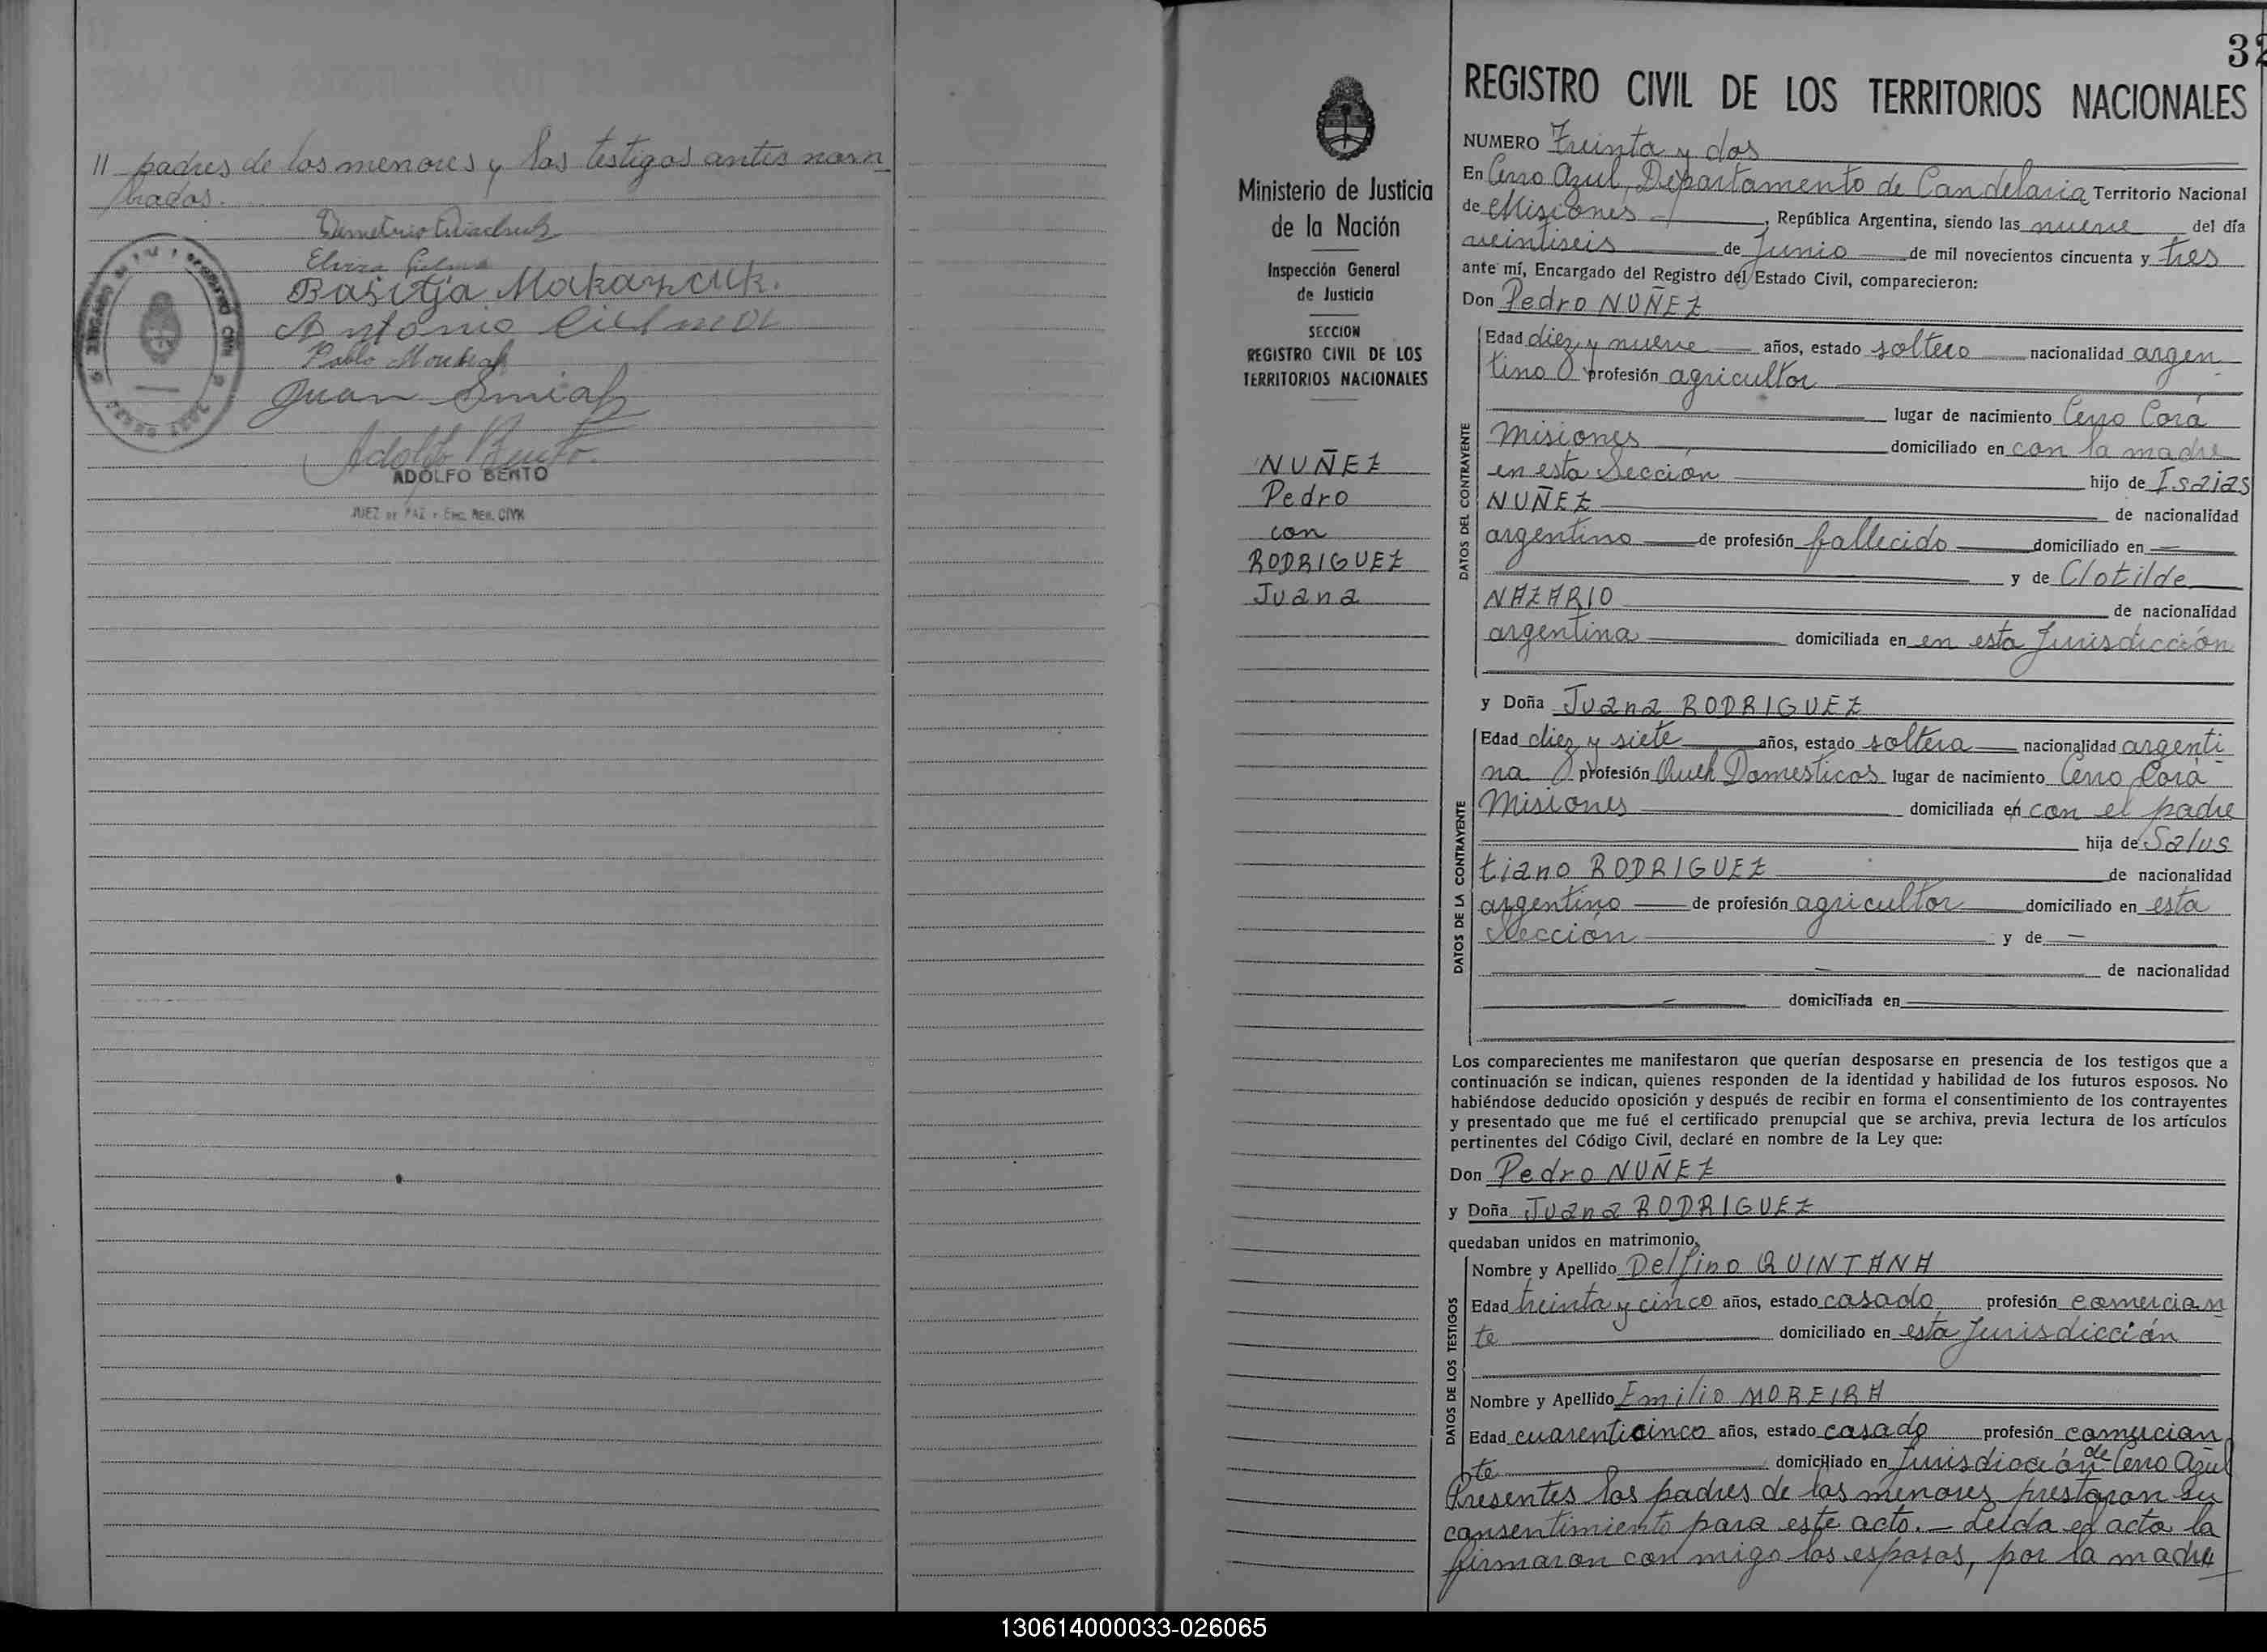 " padres de los menores y los testigos antes nom
brados.
Demetrio
Elvira
Basilja Makarzcuk.
Antonio
Pablo
Juan
Adolfo Bento.
ADOLFO BENTO
JUEZ DE PAZ Y ENC. REG. CIVIL
32
REGISTRO CIVIL DE LOS TERRITORIOS NACIONALES
Ministerio de Justicia
de la Nación
Inspección General
de Justicia
SECCION
REGISTRO CIVIL DE LOS
TERRITORIOS NACIONALES
NUÑEZ
Pedro
con
RODRIGUEZ
Juana
NUMERO Treinta y dos
En Cerro Azul, Departamento de Candelaria Territorio Nacional
de Misiones, República Argentina, siendo las nueve del día
veintiseis de Junio de mil novecientos cincuenta y tres
ante mí, Encargado del Registro del Estado Civil, comparecieron:
Don Pedro NUÑEZ
DATOS DEL CONTRAYENTE
Edad diez y nueve años, estado soltero nacionalidad argen
tino profesión agricultor
lugar de nacimiento Cerro Corá
Misiones domiciliado en con la madre
en esta Sección hijo de Isaias
NUÑEZ de nacionalidad
argentino de profesión fallecido domiciliado en —
y de Clotilde
NAZARIO de nacionalidad
argentina domiciliada en en esta Jurisdicción
y Doña Juana RODRIGUEZ
DATOS DE LA CONTRAYENTE
Edad diez y siete años, estado soltera nacionalidad argenti
na profesión Queh. Domesticos lugar de nacimiento Cerro Corá
Misiones domiciliada en con el padre
hija de Salus
tiano RODRIGUEZ de nacionalidad
argentino de profesión agricultor domiciliado en esta
Sección y de —
— de nacionalidad
— domiciliada en
Los comparecientes me manifestaron que querían desposarse en presencia de los testigos que a
continuación se indican, quienes responden de la identidad y habilidad de los futuros esposos. No
habiéndose deducido oposición y después de recibir en forma el consentimiento de los contrayentes
y presentado que me fué el certificado prenupcial que se archiva, previa lectura de los artículos
pertinentes del Código Civil, declaré en nombre de la Ley que:
Don Pedro NUÑEZ
y Doña Juana RODRIGUEZ
quedaban unidos en matrimonio,
DATOS DE LOS TESTIGOS
Nombre y Apellido Delfino QUINTANA
Edad treinta y cinco años, estado casado profesión comercian
te domiciliado en esta Jurisdicción
Nombre y Apellido Emilio MOREIRA
Edad cuarenticinco años, estado casado profesión comercian
te domiciliado en Jurisdicción de Cerro Azul
Presentes los padres de los menores prestaron su
consentimiento para este acto. — Leída el acta la
firmaron con migo los esposos, por la madre
130614000033-026065